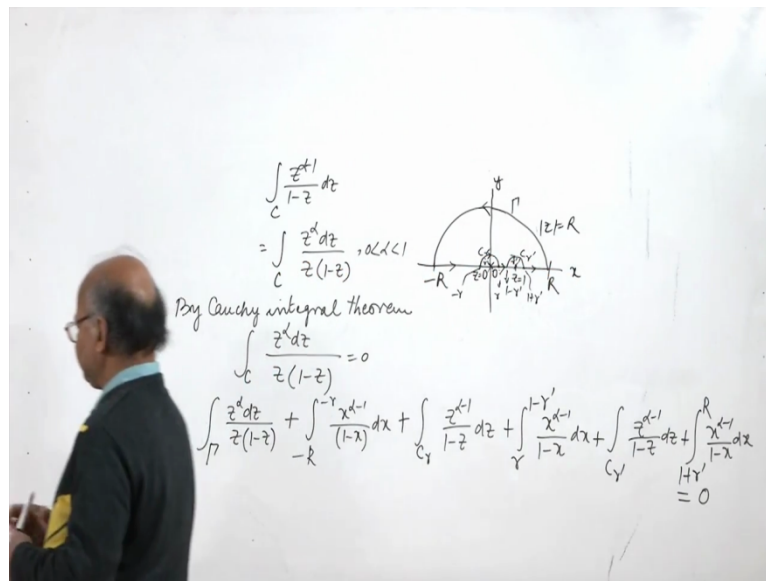 ∫_C z^{α-1}/(1-z) dz
= ∫_C z^α dz/(z(1-z)) , 0<α<1
y
Γ
|z|=R
C_r C_r'
-R -r z=0 0 r 1-r' z=1 1+r' R x
By Cauchy integral theorem
∫_C z^α dz/(z(1-z)) = 0
∫_Γ z^α dz/(z(1-z)) + ∫_{-R}^{-r} x^{α-1}/(1-x) dx + ∫_{C_r} z^{α-1}/(1-z) dz + ∫_r^{1-r'} x^{α-1}/(1-x) dx + ∫_{C_r'} z^{α-1}/(1-z) dz + ∫_{1+r'}^R x^{α-1}/(1-x) dx
= 0